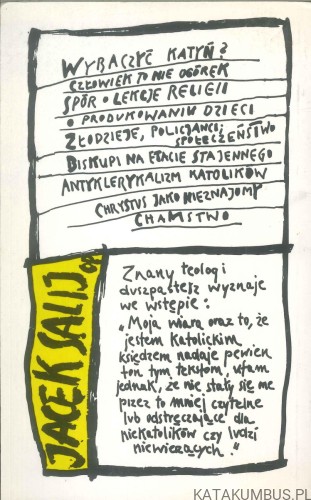 WYBACZYĆ KATYŃ?
CZŁOWIEK TO NIE OGÓREK
SPÓR O LEKCJE RELIGII
O PRODUKOWANIU DZIECI
ZŁODZIEJE, POLICJANCI,
SPOŁECZEŃSTWO
BISKUPI NA ETACIE STAJENNEGO
ANTYKLERYKALIZM KATOLIKÓW
CHRYSTUS JAKO NIEZNAJOMY
CHAMSTWO
JACEK SALIJ OP
Znany teolog i
duszpasterz wyznaje
we wstępie:
„Moja wiara oraz to, że
jestem katolickim
księdzem nadaje pewien
ton tym tekstom, ufam
jednak, że nie stały się one
przez to mniej czytelne
lub odstręczające dla
niekatolików czy ludzi
niewierzących."
KATAKUMBUS.PL